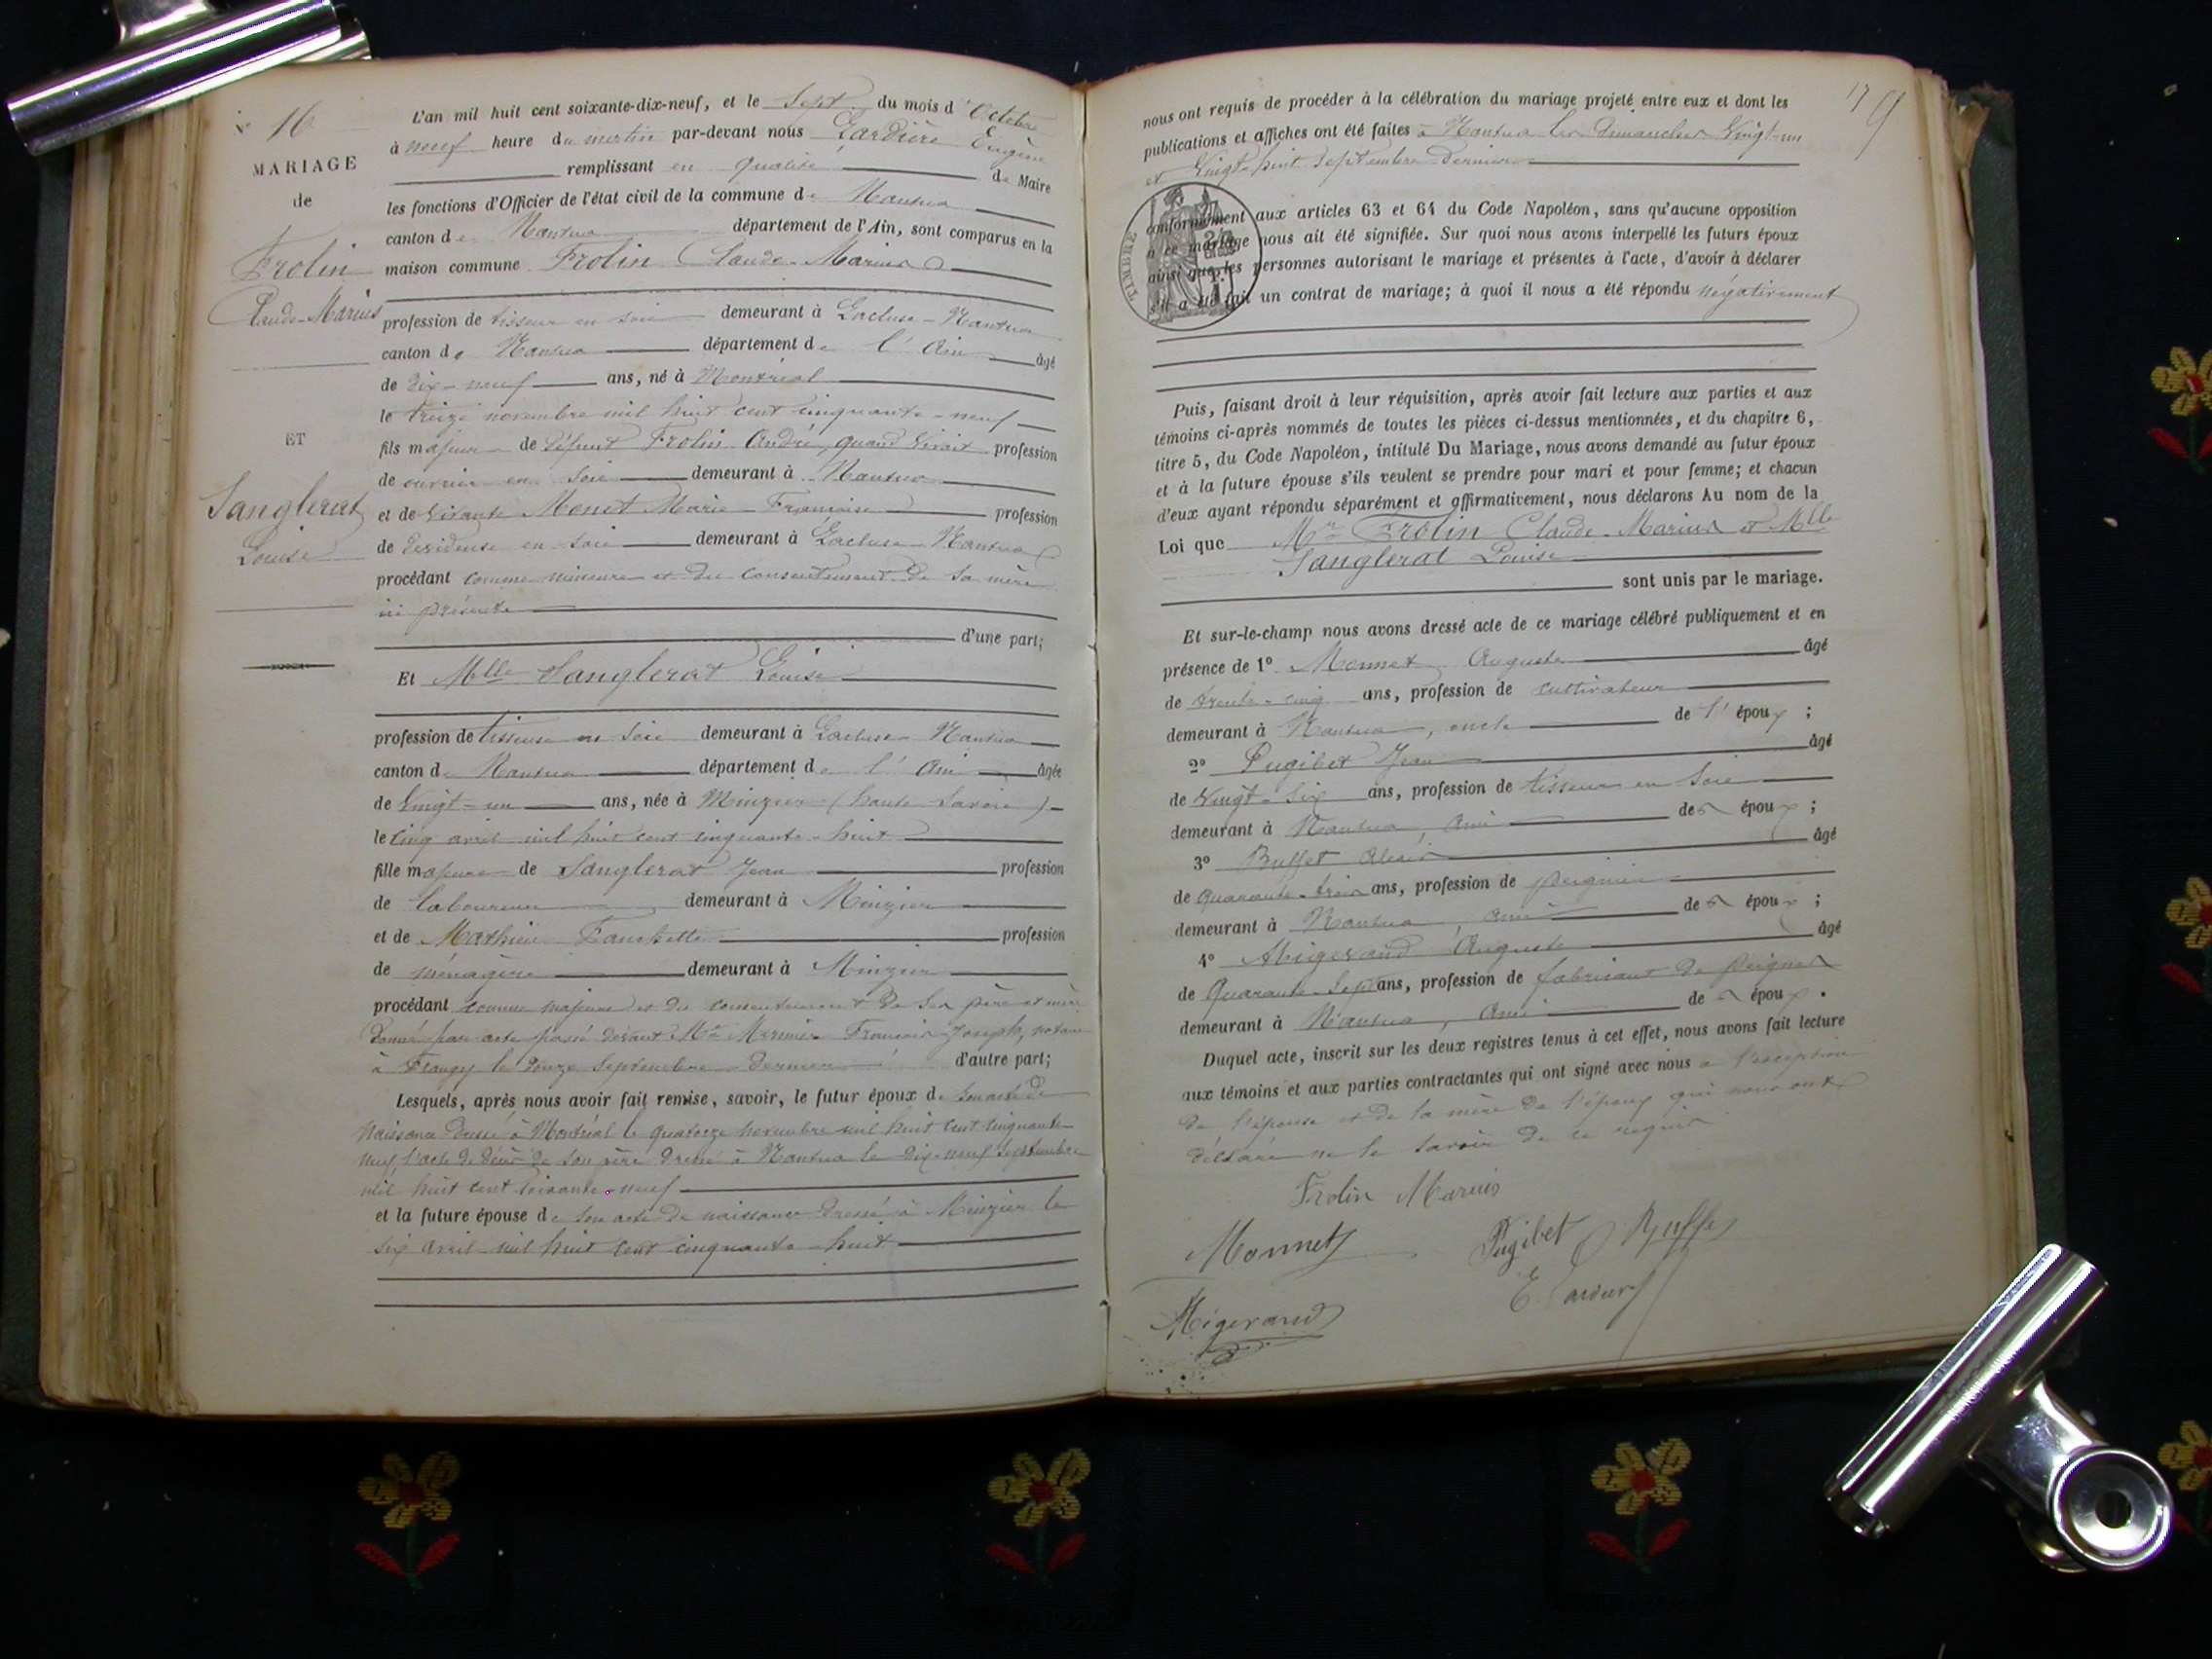 N° 16
MARIAGE
de
Frolin
Claude-Marius
ET
Sanglerat
Louise
L'an mil huit cent soixante-dix-neuf, et le Sept du mois d'Octobre
à neuf heure du matin par-devant nous Lardière Eugène
remplissant en qualité de Maire
les fonctions d'Officier de l'état civil de la commune de Nantua
canton de Nantua département de l'Ain, sont comparus en la
maison commune Frolin Claude-Marius
profession de tisseur en soie demeurant à Lacluse-Nantua
canton de Nantua département de l'Ain âgé
de dix-neuf ans, né à Montréal
le treize novembre mil huit cent cinquante-neuf
fils majeur de défunt Frolin André, quand vivait profession
de ouvrier en soie demeurant à Nantua
et de vivante Monet Marie Françoise profession
de dévideuse en soie demeurant à Lacluse-Nantua
procédant comme mineure et du consentement de sa mère
ici présente
d'une part;
Et Mlle Sanglerat Louise
profession de tisseuse en soie demeurant à Lacluse Nantua
canton de Nantua département de l'Ain âgée
de Vingt-un ans, née à Minzier (haute Savoie)
le cinq avril mil huit cent cinquante-huit
fille majeure de Sanglerat Jean profession
de laboureur demeurant à Minzier
et de Mathieu Fanchette profession
de ménagère demeurant à Minzier
procédant comme majeure et du consentement de ses père et mère
donné par acte passé devant Me Mermier François-Joseph, notaire
à Frangy le douze Septembre dernier d'autre part;
Lesquels, après nous avoir fait remise, savoir, le futur époux de son acte de
naissance dressé à Montréal le quatorze novembre mil huit cent cinquante-
neuf, l'acte de décès de son père dressé à Nantua le dix-neuf Septembre
mil huit cent soixante-neuf
et la future épouse de son acte de naissance dressé à Minzier le
six avril mil huit cent cinquante-huit
179
nous ont requis de procéder à la célébration du mariage projeté entre eux et dont les
publications et affiches ont été faites à Nantua les dimanches Vingt-un
et Vingt-huit Septembre dernier
TIMBRE
conformément aux articles 63 et 64 du Code Napoléon, sans qu'aucune opposition
à ce mariage nous ait été signifiée. Sur quoi nous avons interpellé les futurs époux
ainsi que les personnes autorisant le mariage et présentes à l'acte, d'avoir à déclarer
s'il a été fait un contrat de mariage; à quoi il nous a été répondu négativement
Puis, faisant droit à leur réquisition, après avoir fait lecture aux parties et aux
témoins ci-après nommés de toutes les pièces ci-dessus mentionnées, et du chapitre 6,
titre 5, du Code Napoléon, intitulé Du Mariage, nous avons demandé au futur époux
et à la future épouse s'ils veulent se prendre pour mari et pour femme; et chacun
d'eux ayant répondu séparément et affirmativement, nous déclarons Au nom de la
Loi que Mr Frolin Claude-Marius et Mlle
Sanglerat Louise
sont unis par le mariage.
Et sur-le-champ nous avons dressé acte de ce mariage célébré publiquement et en
présence de 1° Monnet Auguste âgé
de trente-cinq ans, profession de cultivateur
demeurant à Nantua, oncle de l'époux ;
2° Pugibet Jean âgé
de Vingt-six ans, profession de tisseur en Soie
demeurant à Nantua, Ami des époux ;
3° Buffet Alexis âgé
de Quarante-trois ans, profession de peignier
demeurant à Nantua, ami des époux ;
4° Migerand Auguste âgé
de Quarante-sept ans, profession de fabricant de Peignes
demeurant à Nantua, Ami des époux.
Duquel acte, inscrit sur les deux registres tenus à cet effet, nous avons fait lecture
aux témoins et aux parties contractantes qui ont signé avec nous a l'exception
de l'épouse et de la mère de l'époux qui nous ont
déclaré ne le savoir de ce requis
Frolin Marius
Monnet Pugibet Buffet
Migerand